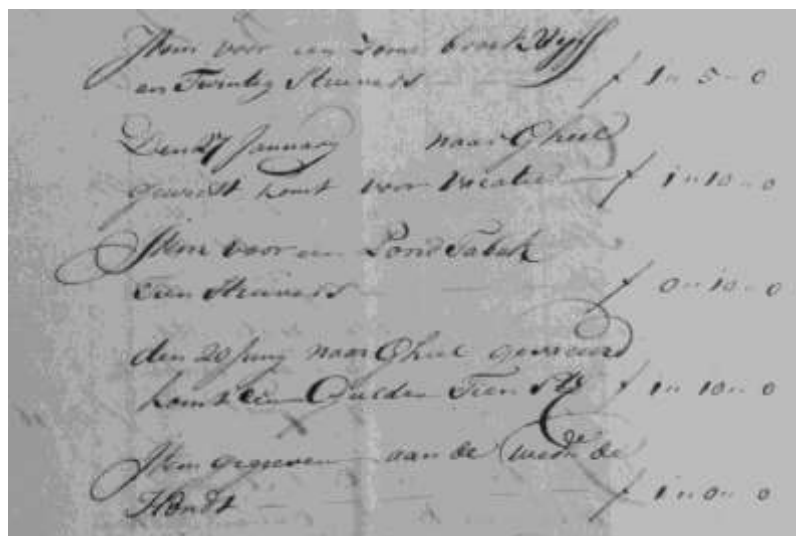 Item voor een Zome broek Vijff
en Twintig Stuivers f 1 " 5 " 0
Den 27 January naar Gheel
geweest komt voor Vacatie f 1 " 10 " 0
Item voor een Pond Tabak
Tien Stuivers f 0 " 10 " 0
den 20 Juny naar Gheel geweest
komt een Gulden Tien St. f 1 " 10 " 0
Item gegeven aan de Wed.de de
Hondt f 1 " 0 " 0